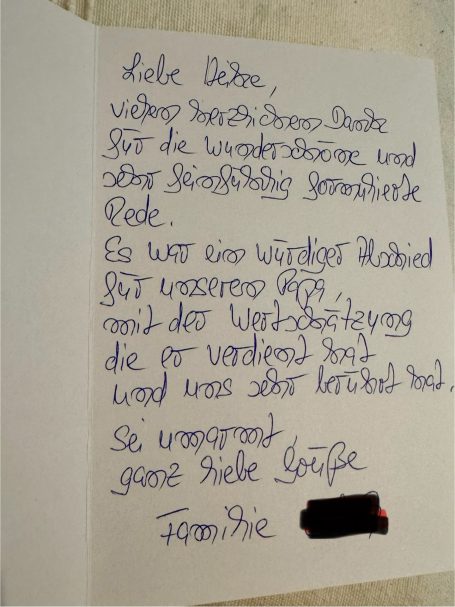 Liebe Heike,
vielen herzlichen Dank
für die wunderschöne und
sehr feinfühlig formulierte
Rede.
Es war ein würdiger Abschied
für unseren Papa,
mit der Wertschätzung
die er verdient hat
und uns sehr berührt hat.
Sei umarmt,
ganz liebe Grüße
Familie